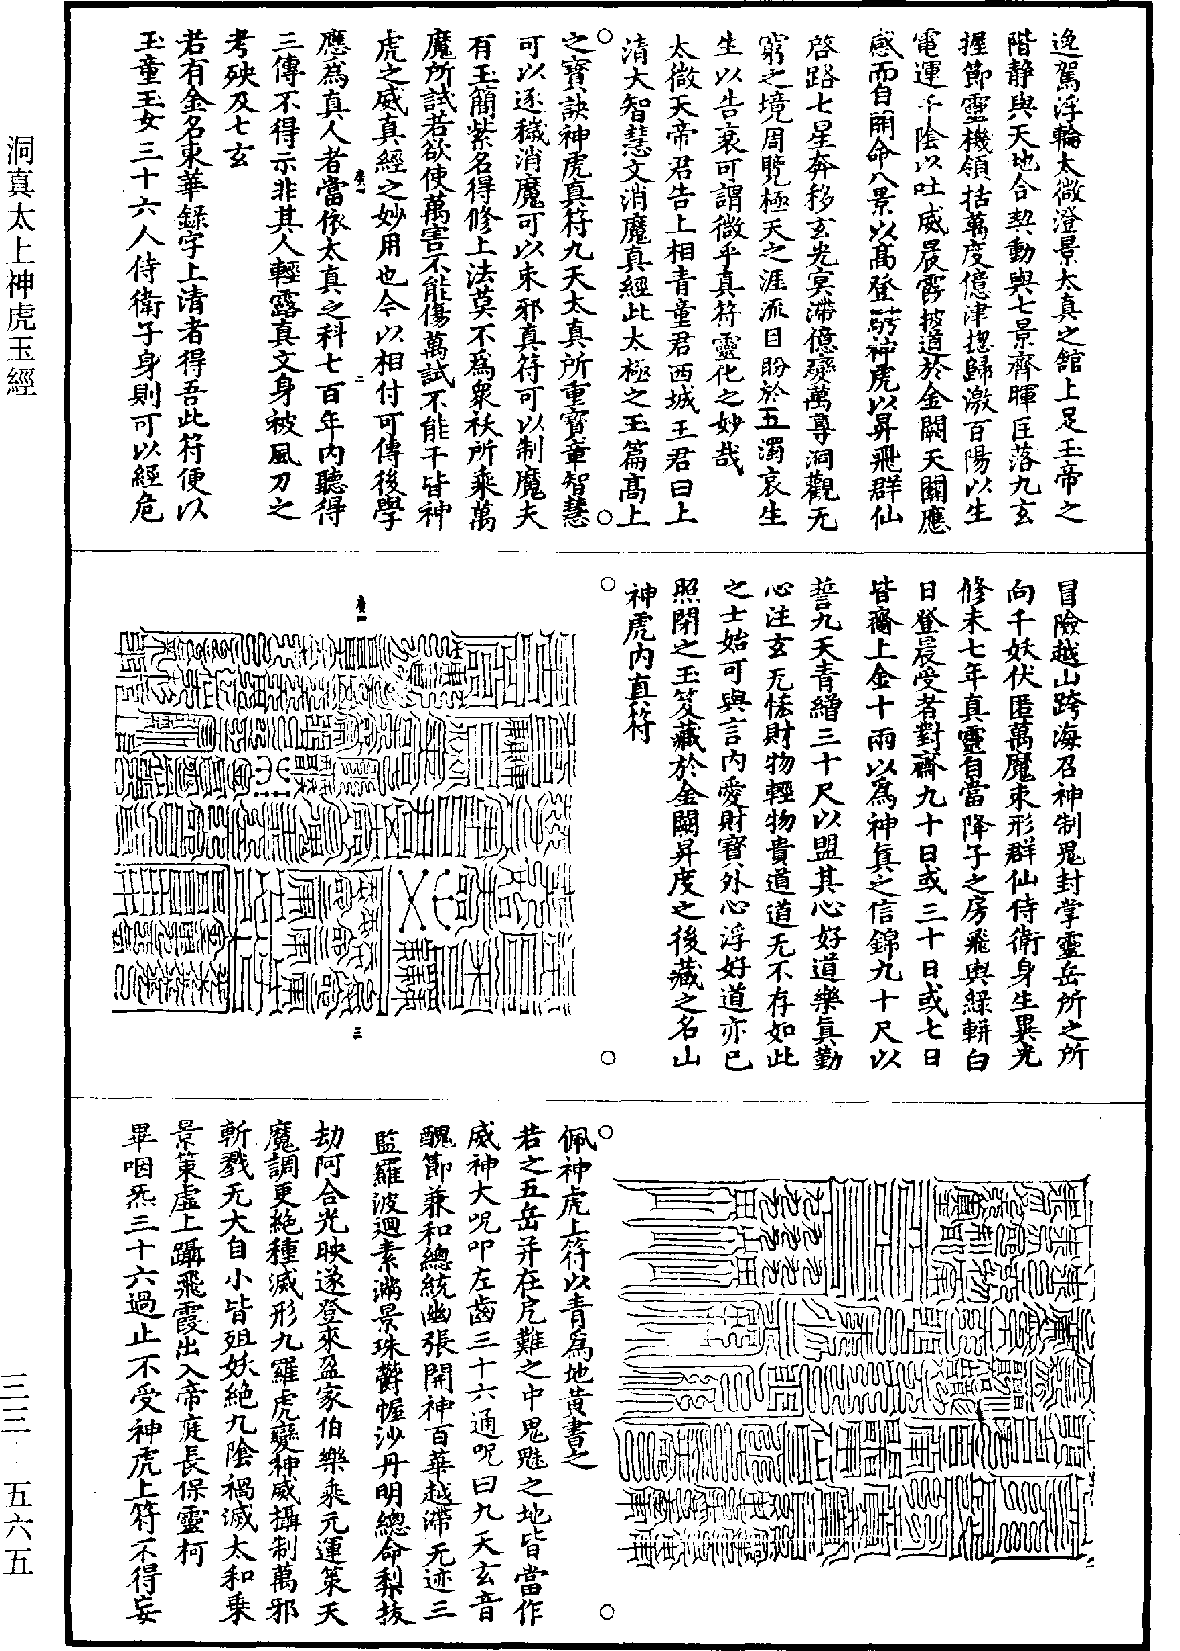 逸駕浮輪太微澄景太真之館上足玉帝之
階静與天地合契動與七景齊暉匡落九玄
握節靈機領括萬度億津揔歸激百陽以生
電運千陰以吐威晨霄披道於金闕天關應
感而自開命八景以髙登 神虎以昇飛群仙
啓路七星奔移玄光冥滯億變萬尋洞觀无
窮之境周覽極天之涯派目盼於五濁哀生
生以告衰可謂微乎真符靈化之妙哉
太微天帝君告上相青童君西城王君曰上
清大智慧文消魔真經此太極之玉篇髙上
之寶訣神虎真符九天太真所重寶章智慧
可以逐穢消魔可以束邪真符可以制魔夫
有玉簡紫名得修上法莫不爲衆祅所乘萬
魔所試若欲使萬害不能傷萬試不能干皆神
虎之威真經之妙用也今以相付可傳後學
應爲真人者當依太真之科七百年内聽得
三傳不得示非其人輕露真文身被風刀之
考殃及七玄
若有金名東華録字上清者得吾此符便以
玉童玉女三十六人侍衛子身則可以經危
二
冒險越山跨海召神制鬼封掌靈岳所之所
向千妖伏匿萬魔束形群仙侍衛身生異光
修未七年真靈自當降子之房飛輿緑軿白
日登晨受者對齋九十日或三十日或七日
皆齋上金十兩以爲神真之信錦九十尺以
誓九天青繒三十尺以盟其心好道樂真勤
心注玄无恡財物輕物貴道道无不存如此
之士始可與言内愛財寶外心浮好道亦已
照閉之玉笈藏於金闕昇度之後藏之名山
神虎内真符
三
佩神虎上符以青爲地黄書之
若之五岳并在戹難之中鬼魅之地皆當作
威神大呪叩左齒三十六通呪曰九天玄音
醜節兼和總統幽張開神百華越滯无迹三
監羅波迴素滿景珠欝幄沙丹明總命梨抜
劫阿合光映遂登來盈家伯樂乘元運策天
魔調更絶種滅形九羅虎變神威攝制萬邪
斬戮无大自小皆殂妖絶九陰禍滅太和乗
景策虚上躡飛霞出入帝庭長保靈柯
畢咽炁三十六過止不受神虎上符不得妄
洞真太上神虎玉經
三三
五六五